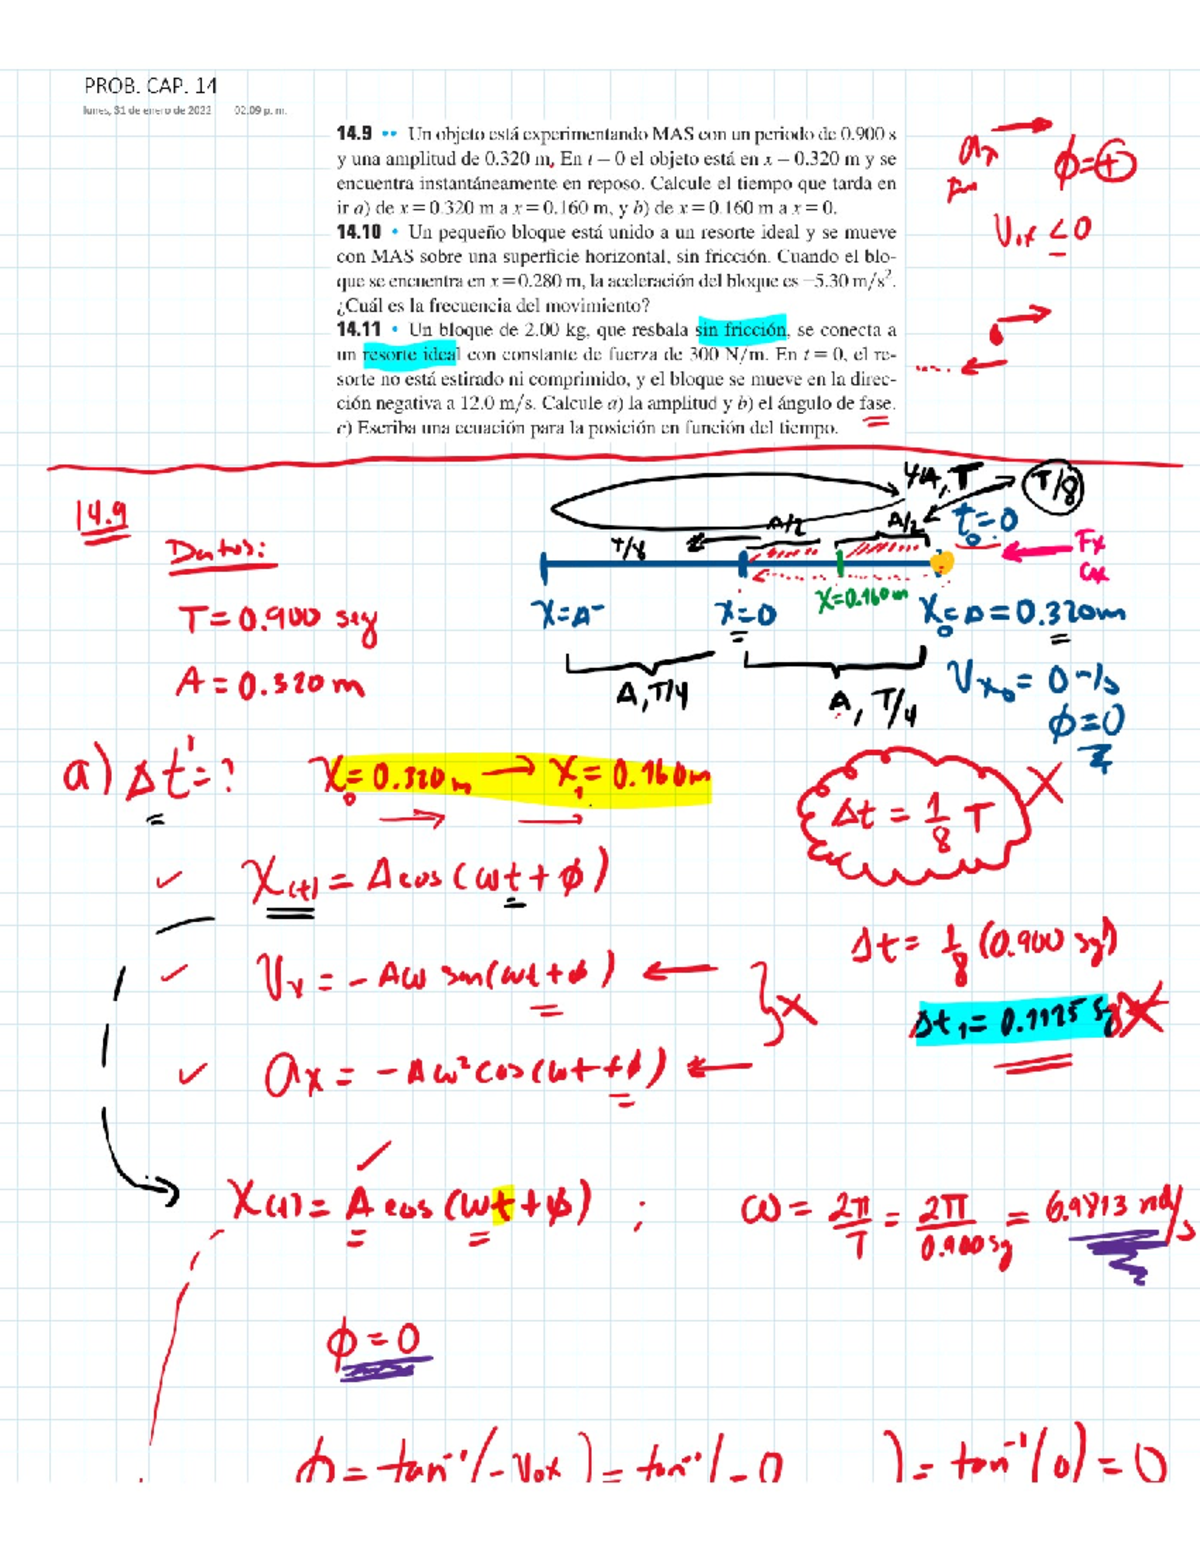 PROB. CAP. 14
lunes, 31 de enero de 2022 02:09 p. m.
14.9 •• Un objeto está experimentando MAS con un periodo de 0.900 s
y una amplitud de 0.320 m. En t = 0 el objeto está en x = 0.320 m y se
encuentra instantáneamente en reposo. Calcule el tiempo que tarda en
ir a) de x = 0.320 m a x = 0.160 m, y b) de x = 0.160 m a x = 0.
14.10 • Un pequeño bloque está unido a un resorte ideal y se mueve
con MAS sobre una superficie horizontal, sin fricción. Cuando el blo-
que se encuentra en x = 0.280 m, la aceleración del bloque es −5.30 m/s².
¿Cuál es la frecuencia del movimiento?
14.11 • Un bloque de 2.00 kg, que resbala sin fricción, se conecta a
un resorte ideal con constante de fuerza de 300 N/m. En t = 0, el re-
sorte no está estirado ni comprimido, y el bloque se mueve en la direc-
ción negativa a 12.0 m/s. Calcule a) la amplitud y b) el ángulo de fase.
c) Escriba una ecuación para la posición en función del tiempo.
ax
ϕ=(+)
Vox <0
14.9
Datos:
T = 0.900 seg
A = 0.320 m
4A, T
T/8
A/2
A/2
t=0
T/8
Fx
ax
x=A-
x=0
x=0.160m
x₀=A=0.320m
A, T/4
A, T/4
Vx₀ = 0 m/s
ϕ=0
a) Δt'=?
x₀=0.320m → x₁=0.160m
Δt = 1/8 T X
✓ X(t) = A cos(ωt+ϕ)
Δt = 1/8 (0.900 seg)
✓ Vx = -Aω sen(ωt+ϕ) ← } X
Δt₁ = 0.1125 seg X
✓ ax = -Aω² cos(ωt+ϕ) ←
X(t) = A cos(ωt+ϕ) ; ω = 2π/T = 2π/0.900sg = 6.9813 rad/s
ϕ=0
ϕ = tan⁻¹(-Vox ) = tan⁻¹(-0 ) = tan⁻¹(0) = 0